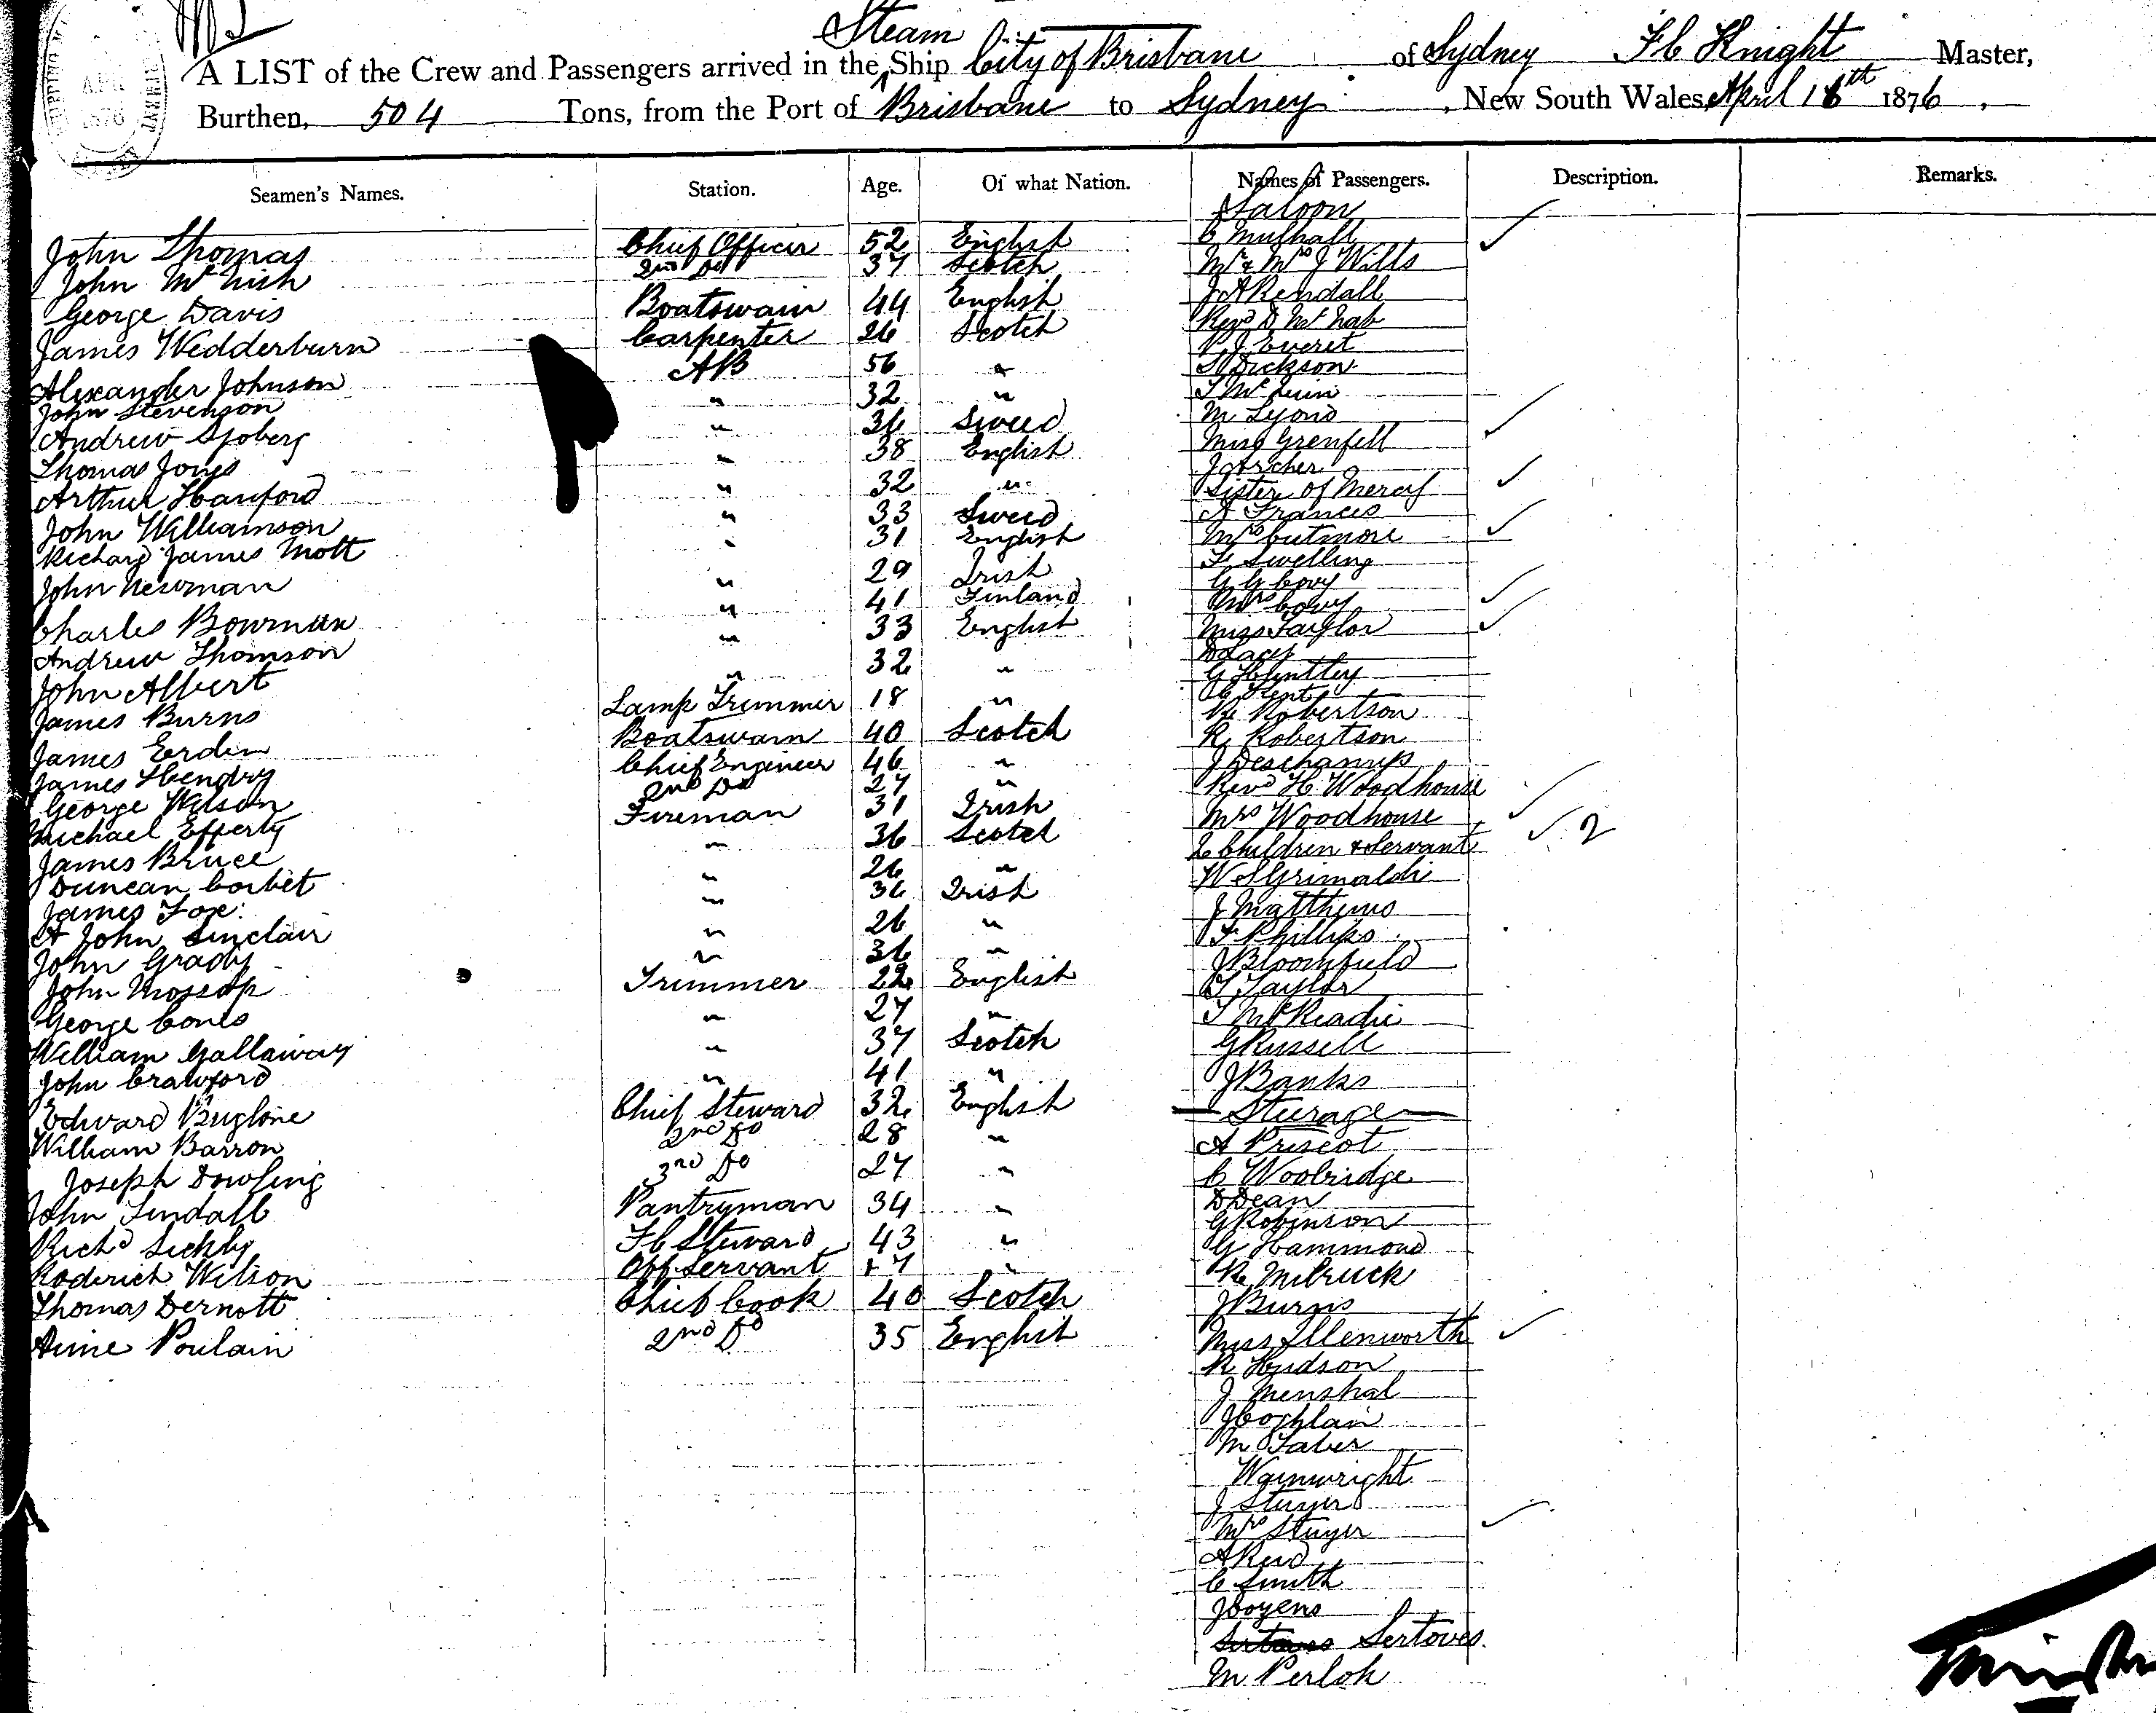 Steam
A LIST of the Crew and Passengers arrived in the Ship City of Brisbane of Sydney F C Knight Master,
Burthen, 504 Tons, from the Port of Brisbane to Sydney, New South Wales, April 16th 1876.
Seamen's Names. Station. Age. Of what Nation. Names of Passengers. Description. Remarks.
Saloon
John Thomas Chief Officer 52 English C Mulhall
John McNish 2nd Do 37 Scotch Mr & Mrs J Wills
George Davis Boatswain 44 English J A Rendall
James Wedderburn Carpenter 26 Scotch Revd D McNab
Alexander Johnson AB 56 " P J Everet
John Stevenson " 32 " S Dickson
Andrew Sjoberg " 36 Sweed T McLuin
Thomas Jones " 38 English M Lyons
Arthur Hanford " 32 " Miss Grenfell
John Williamson " 33 Sweed J Archer
Richard James Mott " 31 English Sister of Mercy
John Newman " 29 Irish A Frances
Charles Bowman " 41 Finland Mrs Cutmore
Andrew Thomson " 33 English F Swelling
John Albert " 32 " G G Covy
James Burns Lamp Trimmer 18 " Mrs Covy
James Erdin Boatswain 40 Scotch Miss Taylor
James Hendry Chief Engineer 46 " D Lacy
George Wilson 2nd Do 27 " G Huntley
Michael Efferty Fireman 31 Irish C Kent
James Bruce " 36 Scotch R Robertson
Duncan Corbet " 26 " R Robertson
James Fox " 36 Irish J Deschamps
A John Sinclair " 26 " Revd H Woodhouse
John Grady " 36 " Mrs Woodhouse
John Mossop Trimmer 22 English 2 Children & Servant 2
George Cones " 27 " W S Grimaldi
William Gallaway " 37 Scotch J Matthews
John Crawford " 41 " F Phillips
Edward Buglone Chief Steward 32 English J Bloomfield
William Barron 2nd Do 28 " T Taylor
Joseph Dowling 3rd Do 27 " T McReadie
John Tindall Pantryman 34 " G Russell
Richd Sickly F C Steward 43 " J Banks
Roderick Wilson Off Servant 17 " Steerage
Thomas Dernott Chief Cook 40 Scotch A Priscot
Aime Poulain 2nd Do 35 English C Woolridge
D Dean
G Robinson
G Hammond
R Milruck
J Burns
Miss Illenworth
R Hudson
J Menshal
J Coghlan
M Taber
Wainwright
J Stuyer
Mrs Stuyer
A Reid
C Smith
J Coyens
Sertoves
M Perlok